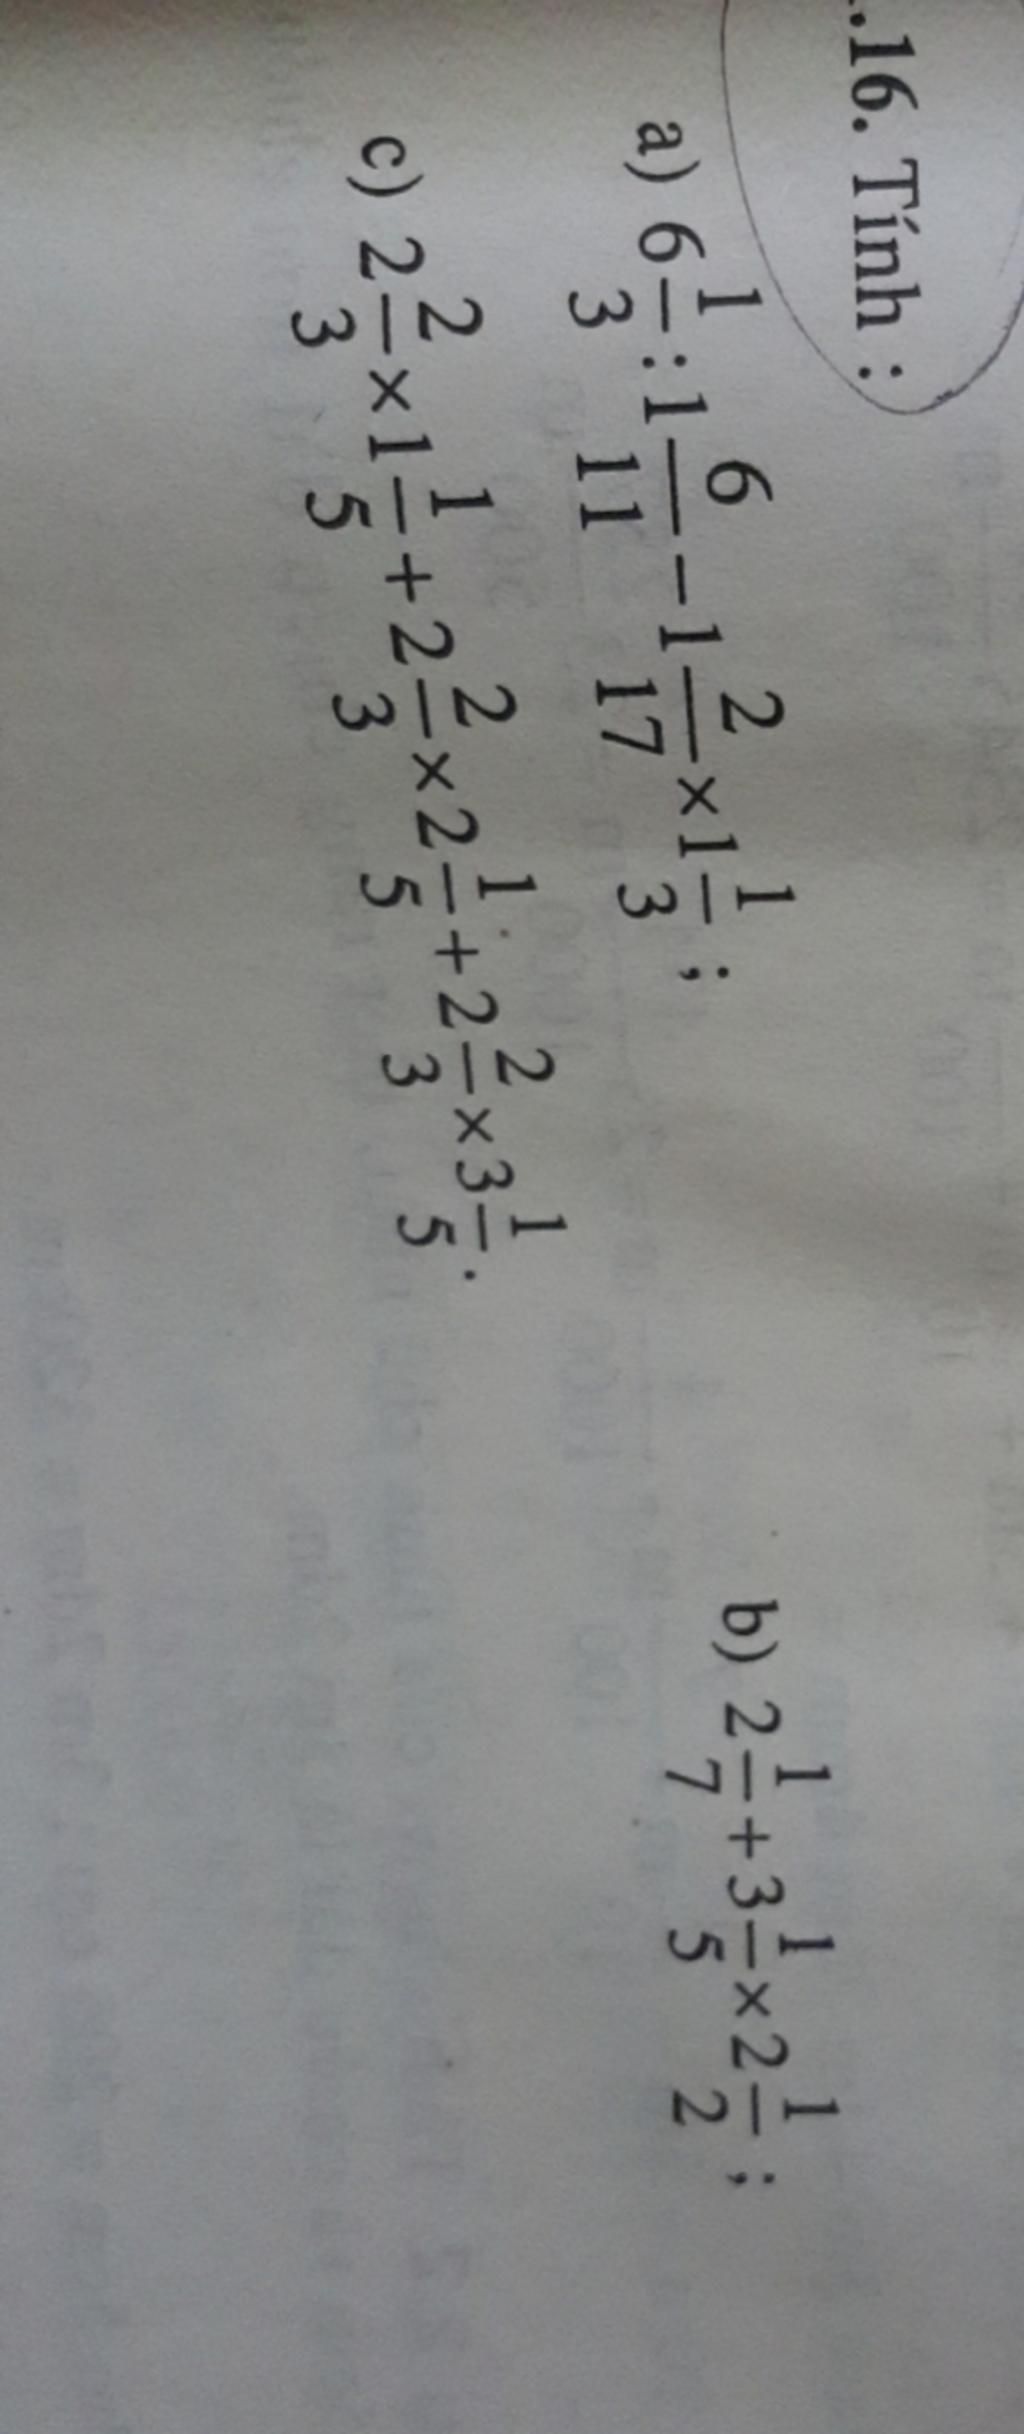 .16. Tính :
a) 6 1/3 : 1 6/11 − 1 2/17 × 1 1/3 ; b) 2 1/7 + 3 1/5 × 2 1/2 ;
c) 2 2/3 × 1 1/5 + 2 2/3 × 2 1/5 + 2 2/3 × 3 1/5 .